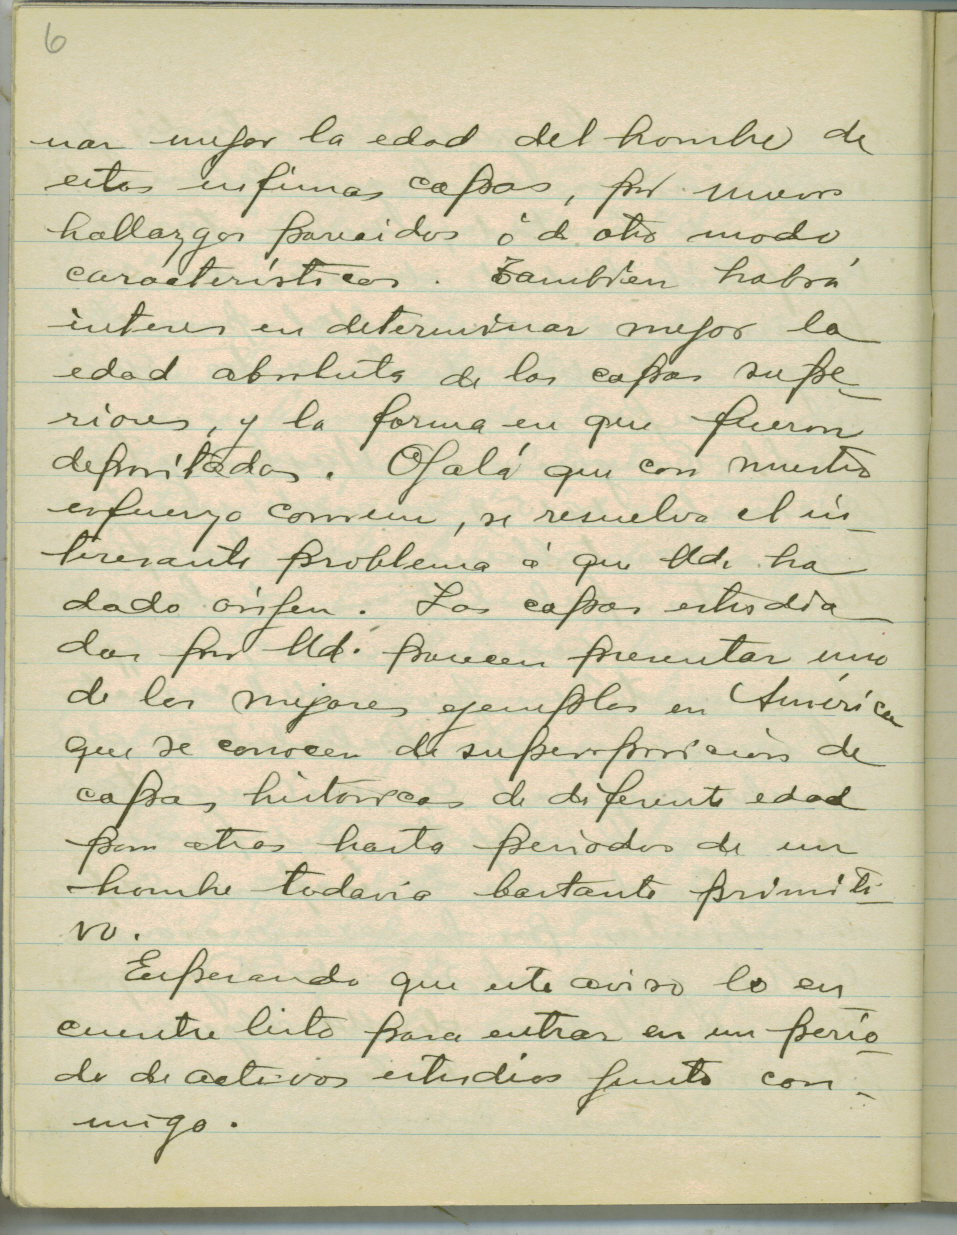 6
nar mejor la edad del hombre de
estas infimas capas, por nuevos
hallazgos parecidos ó de otro modo
característicos. Tambien habrá
interes en determinar mejor la
edad absoluta de las capas supe-
riores, y la forma en que fueron
depositadas. Ojalá que con nuestro
esfuerzo comun, se resuelva el in-
teresante problema á que Ud. ha
dado orígen. Las capas estudia
das por Ud. parecen presentar uno
de los mejores ejemplos en América
que se conocen de superposición de
capas historicas de diferente edad
para atras hasta periodos de un
hombre todavía bastante primiti-
vo.
Esperando que este aviso lo en
cuentre listo para entrar en un perío-
do de activos estudios junto con-
migo.